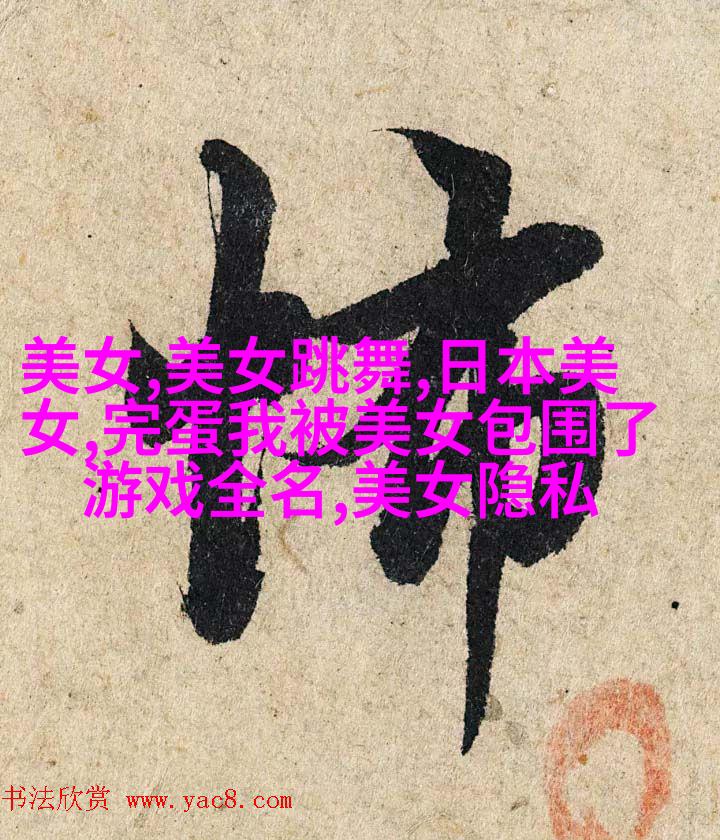 怖
美女,美女跳舞,日本美
女,完蛋我被美女包围了
游戏全名,美女隐私
书法欣赏 www.yac8.com